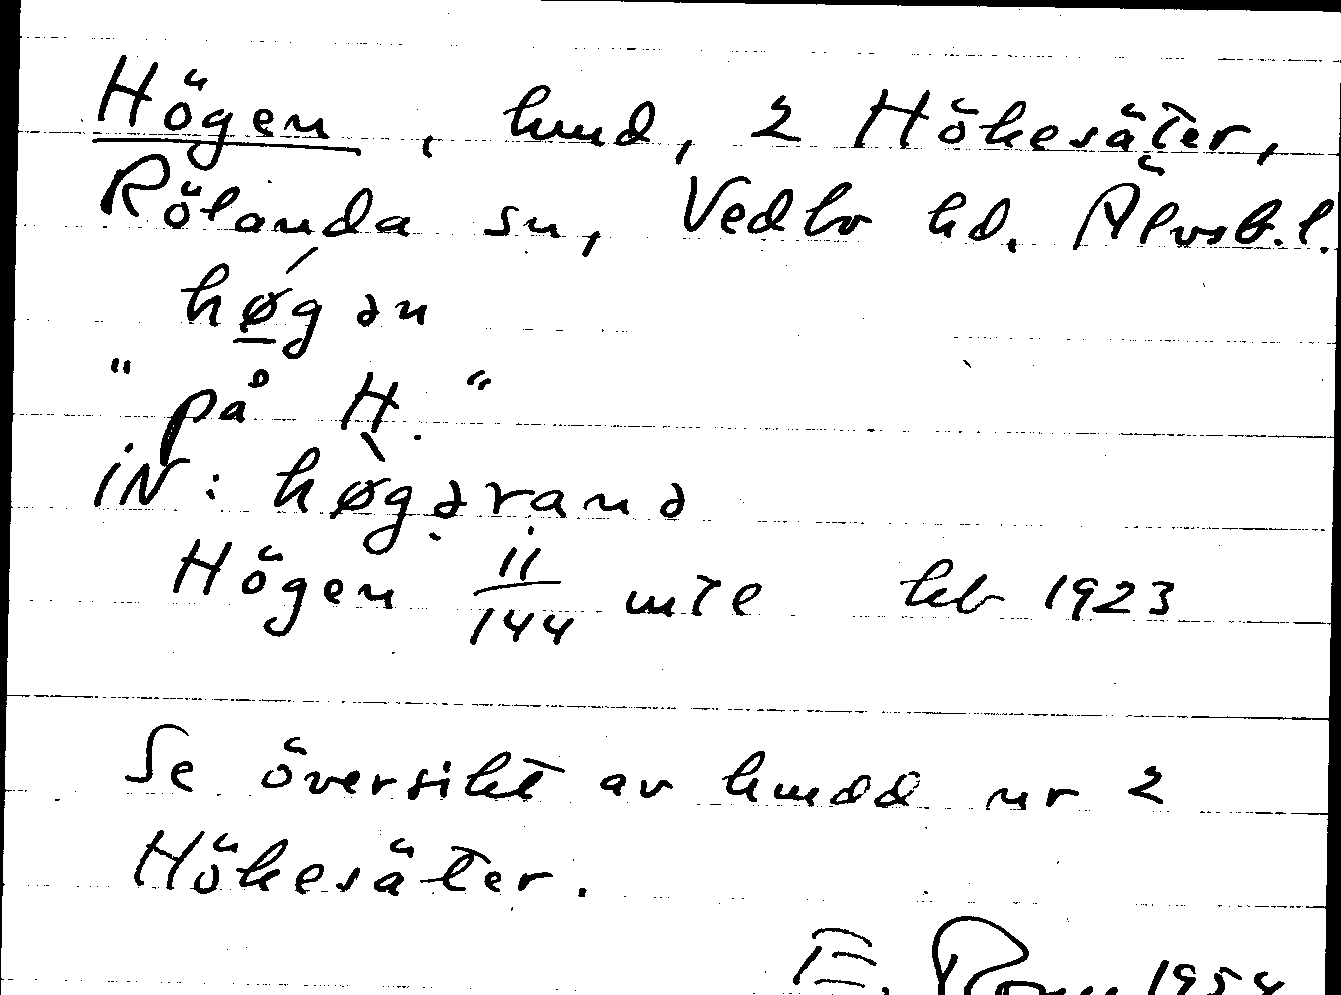 Högen, hmd, 2 Hökesäter,
Rölanda sn, Vedbo hd. Älvsb. l.
hǿ̲gən
"på H."
iN: hø̀gərana
Högen 11/144 mtl hb 1923
Se översikt av hmdd nr 2
Hökesäter.
E. 1954